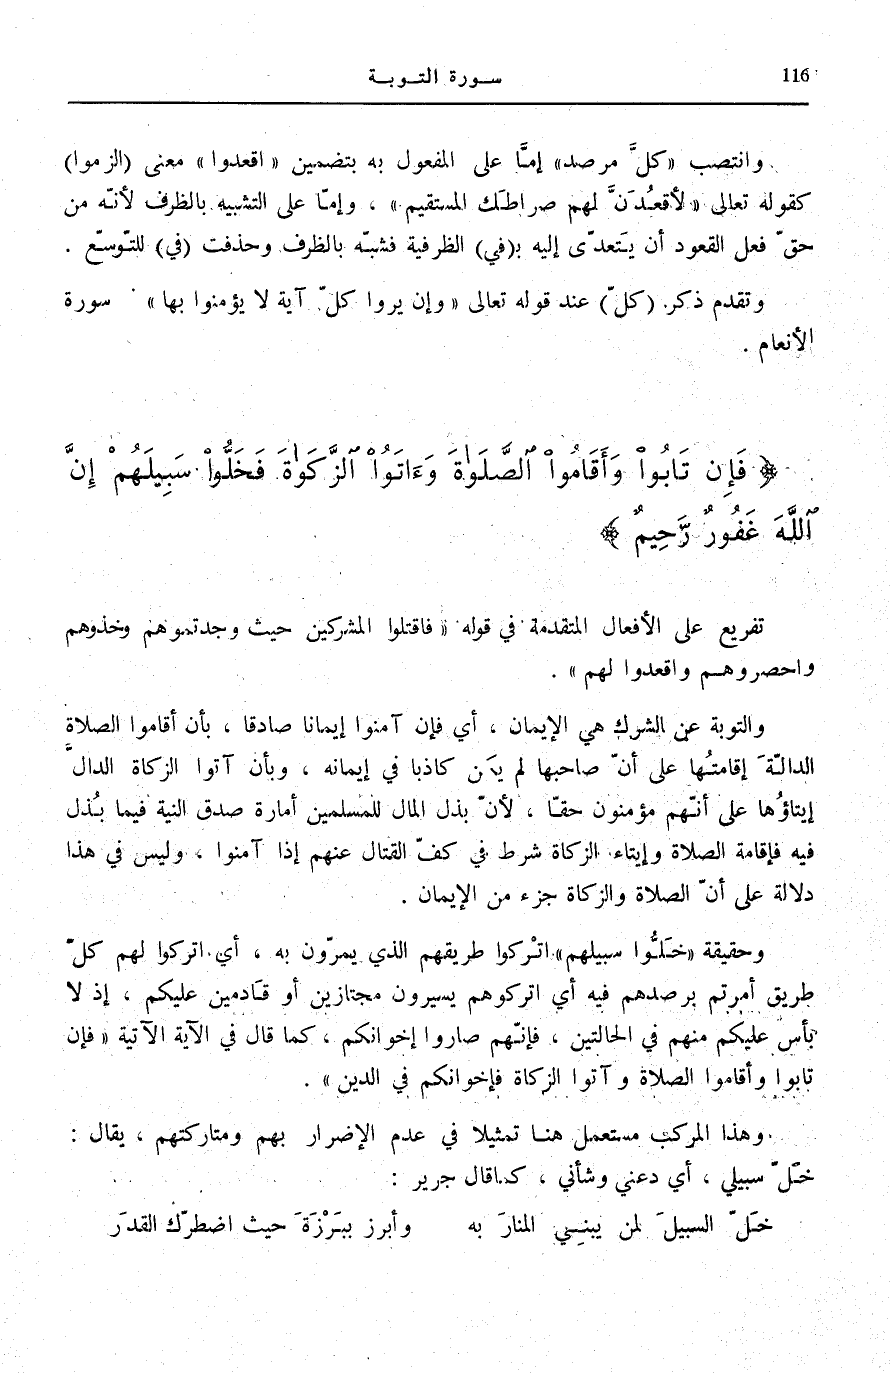 116
سـورة التـوبـة
وانتصب «كلَّ مرصد» إمَّا على المفعول به بتضمين «اقعدوا» معنى (الزموا)
كقوله تعالى «لأقعُدَنَّ لهم صراطَك المستقيم» ، وإمّا على التشبيه بالظرف لأنّه من
حقّ فعل القعود أن يَتعدّى إليه بـ(في) الظرفية فشبّه بالظرف وحذفت (في) للتّوسّع .
وتقدم ذكر (كلّ) عند قوله تعالى «وإن يروا كلّ آية لا يؤمنوا بها» سورة
الأنعام .
﴿ فَإِن تَابُوا۟ وَأَقَامُوا۟ ٱلصَّلَوٰةَ وَءَاتَوُا۟ ٱلزَّكَوٰةَ فَخَلُّوا۟ سَبِيلَهُمْ إِنَّ
ٱللَّهَ غَفُورٌ رَّحِيمٌ ﴾
تفريع على الأفعال المتقدمة في قوله «فاقتلوا المشركين حيث وجدتموهم وخذوهم
واحصروهـم واقعدوا لهم» .
والتوبة عن الشرك هي الإيمان ، أي فإن آمنوا إيمانا صادقا ، بأن أقاموا الصلاة
الدالّةَ إقامتُها على أنّ صاحبها لم يكن كاذبا في إيمانه ، وبأن آتوا الزكاة الدالَّ
إيتاؤُها على أنّهم مؤمنون حقّا ، لأنّ بذل المال للمسلمين أمارة صدق النية فيما بُذل
فيه فإقامة الصلاة وإيتاء الزكاة شرط في كفّ القتال عنهم إذا آمنوا ، وليس في هذا
دلالة على أنّ الصلاة والزكاة جزء من الإيمان .
وحقيقة «خَلُّوا سبيلهم» اتْركوا طريقهم الذي يمرّون به ، أي اتركوا لهم كلّ
طريق أمرتم برصدهم فيه أي اتركوهم يسيرون مجتازين أو قَادمين عليكم ، إذ لا
بأس عليكم منهم في الحالتين ، فإنّهم صاروا إخوانكم ، كما قال في الآية الآتية «فإن
تابوا وأقاموا الصلاة وآتوا الزكاة فإخوانكم في الدين» .
وهذا المركب مستعمل هنـا تمثيلا في عدم الإضرار بهم ومتاركتهم ، يقال :
خَلِّ سبيلي ، أي دعني وشأني ، كما قال جرير :
خَلِّ السبيلَ لمن يبنـي المنارَ به وأبرز ببَرْزَةَ حيث اضطرّك القدَر